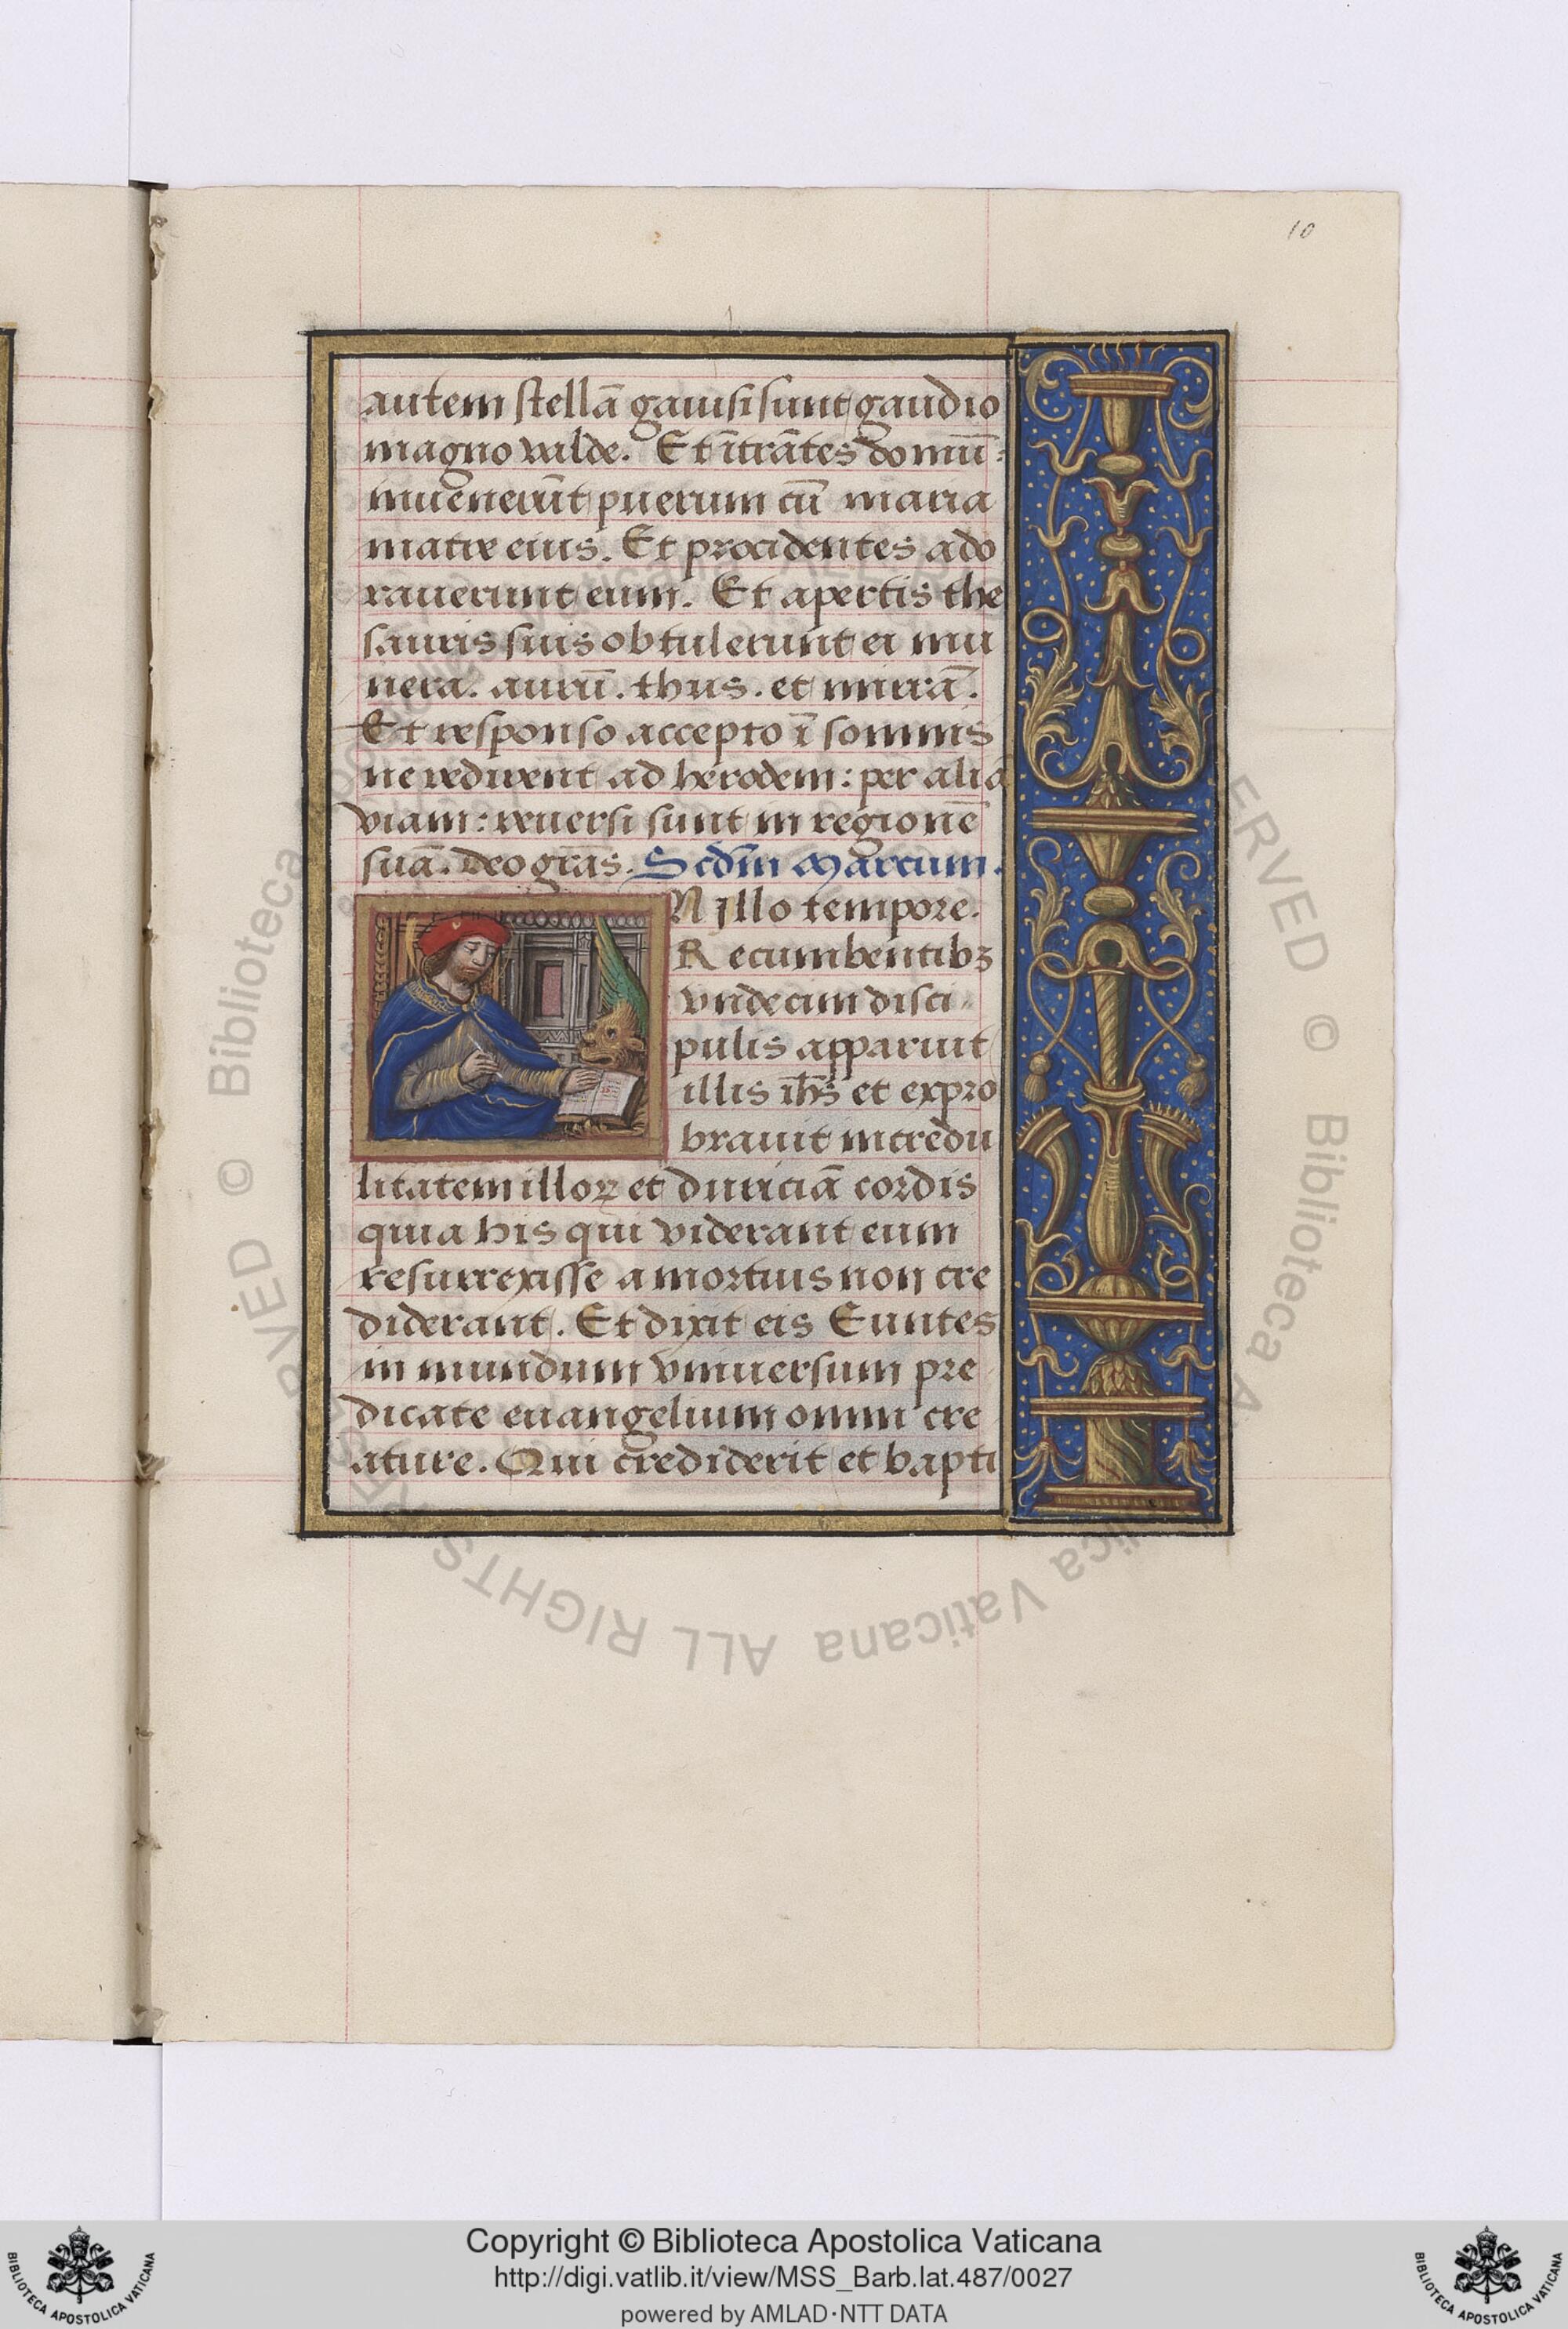 10
autem stellā gauisi sunt gaudio
magno valde. Et ītrātes domū:
inuenerūt puerum cū maria
matre eius. Et procidentes ado
rauerunt eum. Et apertis the
sauris suis obtulerunt ei mu
nera. aurū. thus. et mirrā.
Et responso accepto ī somnis
ne redirent ad herodem: per aliā
viam: reuersi sunt in regionē
suā. Deo grās. Scdm̄ Marcum.
N illo tempore.
Recumbentibꝫ
vndecim disci-
pulis apparuit
illis ih̄s et expro
brauit incredu
litatem illoꝝ et duriciā cordis
quia his qui viderant eum
resurrexisse a mortuis non cre
diderant. Et dixit eis Euntes
in mundum vniuersum pre
dicate euangelium omni cre
ature. Qui crediderit et bapti
Copyright © Biblioteca Apostolica Vaticana
http://digi.vatlib.it/view/MSS_Barb.lat.487/0027
powered by AMLAD·NTT DATA
BIBLIOTECA APOSTOLICA VATICANA
BIBLIOTECA APOSTOLICA VATICANA